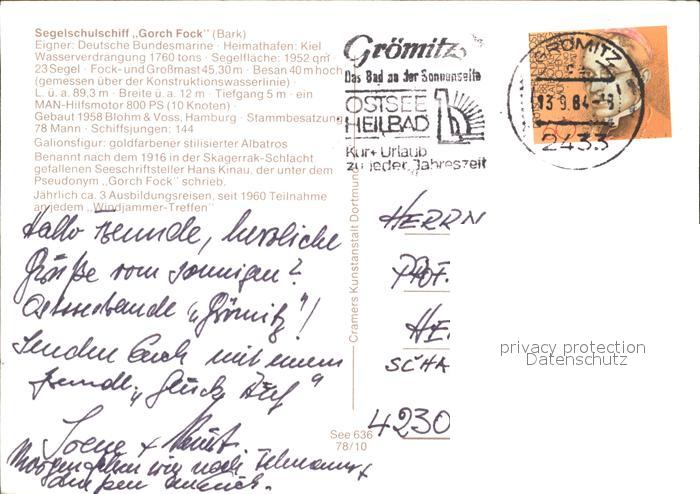 Segelschulschiff „Gorch Fock" (Bark)
Eigner: Deutsche Bundesmarine · Heimathafen: Kiel
Wasserverdrängung 1760 tons · Segelfläche: 1952 qm
23 Segel · Fock- und Großmast 45,30 m · Besan 40 m hoch
(gemessen über der Konstruktionswasserlinie)
L. ü. a. 89,3 m · Breite ü. a. 12 m · Tiefgang 5 m · ein
MAN-Hilfsmotor 800 PS (10 Knoten) ·
Gebaut 1958 Blohm & Voss, Hamburg · Stammbesatzung
78 Mann · Schiffsjungen: 144
Galionsfigur: goldfarbener stilisierter Albatros
Benannt nach dem 1916 in der Skagerrak-Schlacht
gefallenen Seeschriftsteller Hans Kinau, der unter dem
Pseudonym „Gorch Fock" schrieb.
Jährlich ca. 3 Ausbildungsreisen, seit 1960 Teilnahme
an jedem „Windjammer-Treffen"
Grömitz
Das Bad an der Sonnenseite
OSTSEE
HEILBAD
Kur + Urlaub
zu jeder Jahreszeit
GRÖMITZ
13.9.84-8
2433
Hallo Freunde, herzliche
Grüße vom sonnigen?
Ostseestrande „Grömitz"!
Senden Euch mit einem
„Glück Auf"
Morgen fahren wir nach
Cramers Kunstanstalt Dortmund
See 636
78/10
HERRN
PROF.
HE
SCHA
4230
privacy protection
Datenschutz